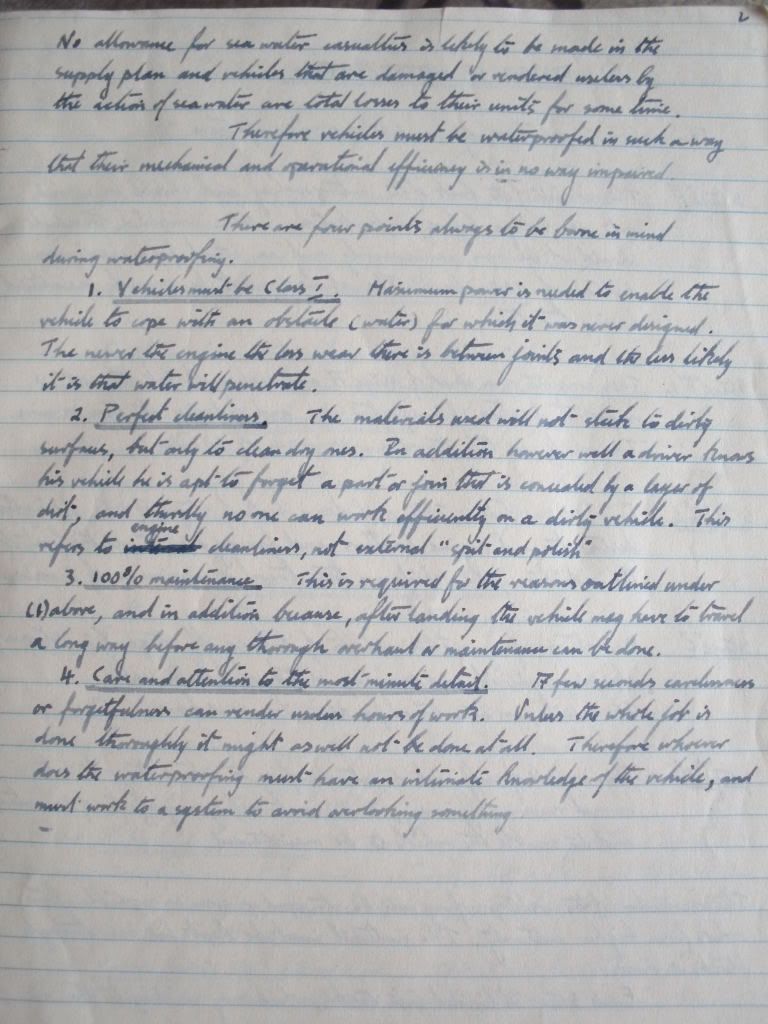 2
No allowance for sea water casualties is likely to be made in the
supply plan and vehicles that are damaged or rendered useless by
the action of sea water are total losses to their units for some time.
Therefore vehicles must be waterproofed in such a way
that their mechanical and operational efficiency is in no way impaired.
There are four points always to be borne in mind
during waterproofing.
1. Vehicles must be Class I. Maximum power is needed to enable the
vehicle to cope with an obstacle (water) for which it was never designed.
The newer the engine the less wear there is between joints and the less likely
it is that water will penetrate.
2. Perfect cleanliness. The materials used will not stick to dirty
surfaces, but only to clean dry ones. In addition however well a driver knows
his vehicle he is apt to forget a part or join that is concealed by a layer of
dirt, and thirdly no one can work efficiently on a dirty vehicle. This
refers to engine cleanliness, not external "spit and polish"
3. 100% maintenance. This is required for the reasons outlined under
(1) above, and in addition because, after landing the vehicle may have to travel
a long way before any thorough overhaul or maintenance can be done.
4. Care and attention to the most minute detail. A few seconds carelessness
or forgetfulness can render useless hours of work. Unless the whole job is
done thoroughly it might as well not be done at all. Therefore whoever
does the waterproofing must have an intimate knowledge of the vehicle, and
must work to a system to avoid overlooking something.